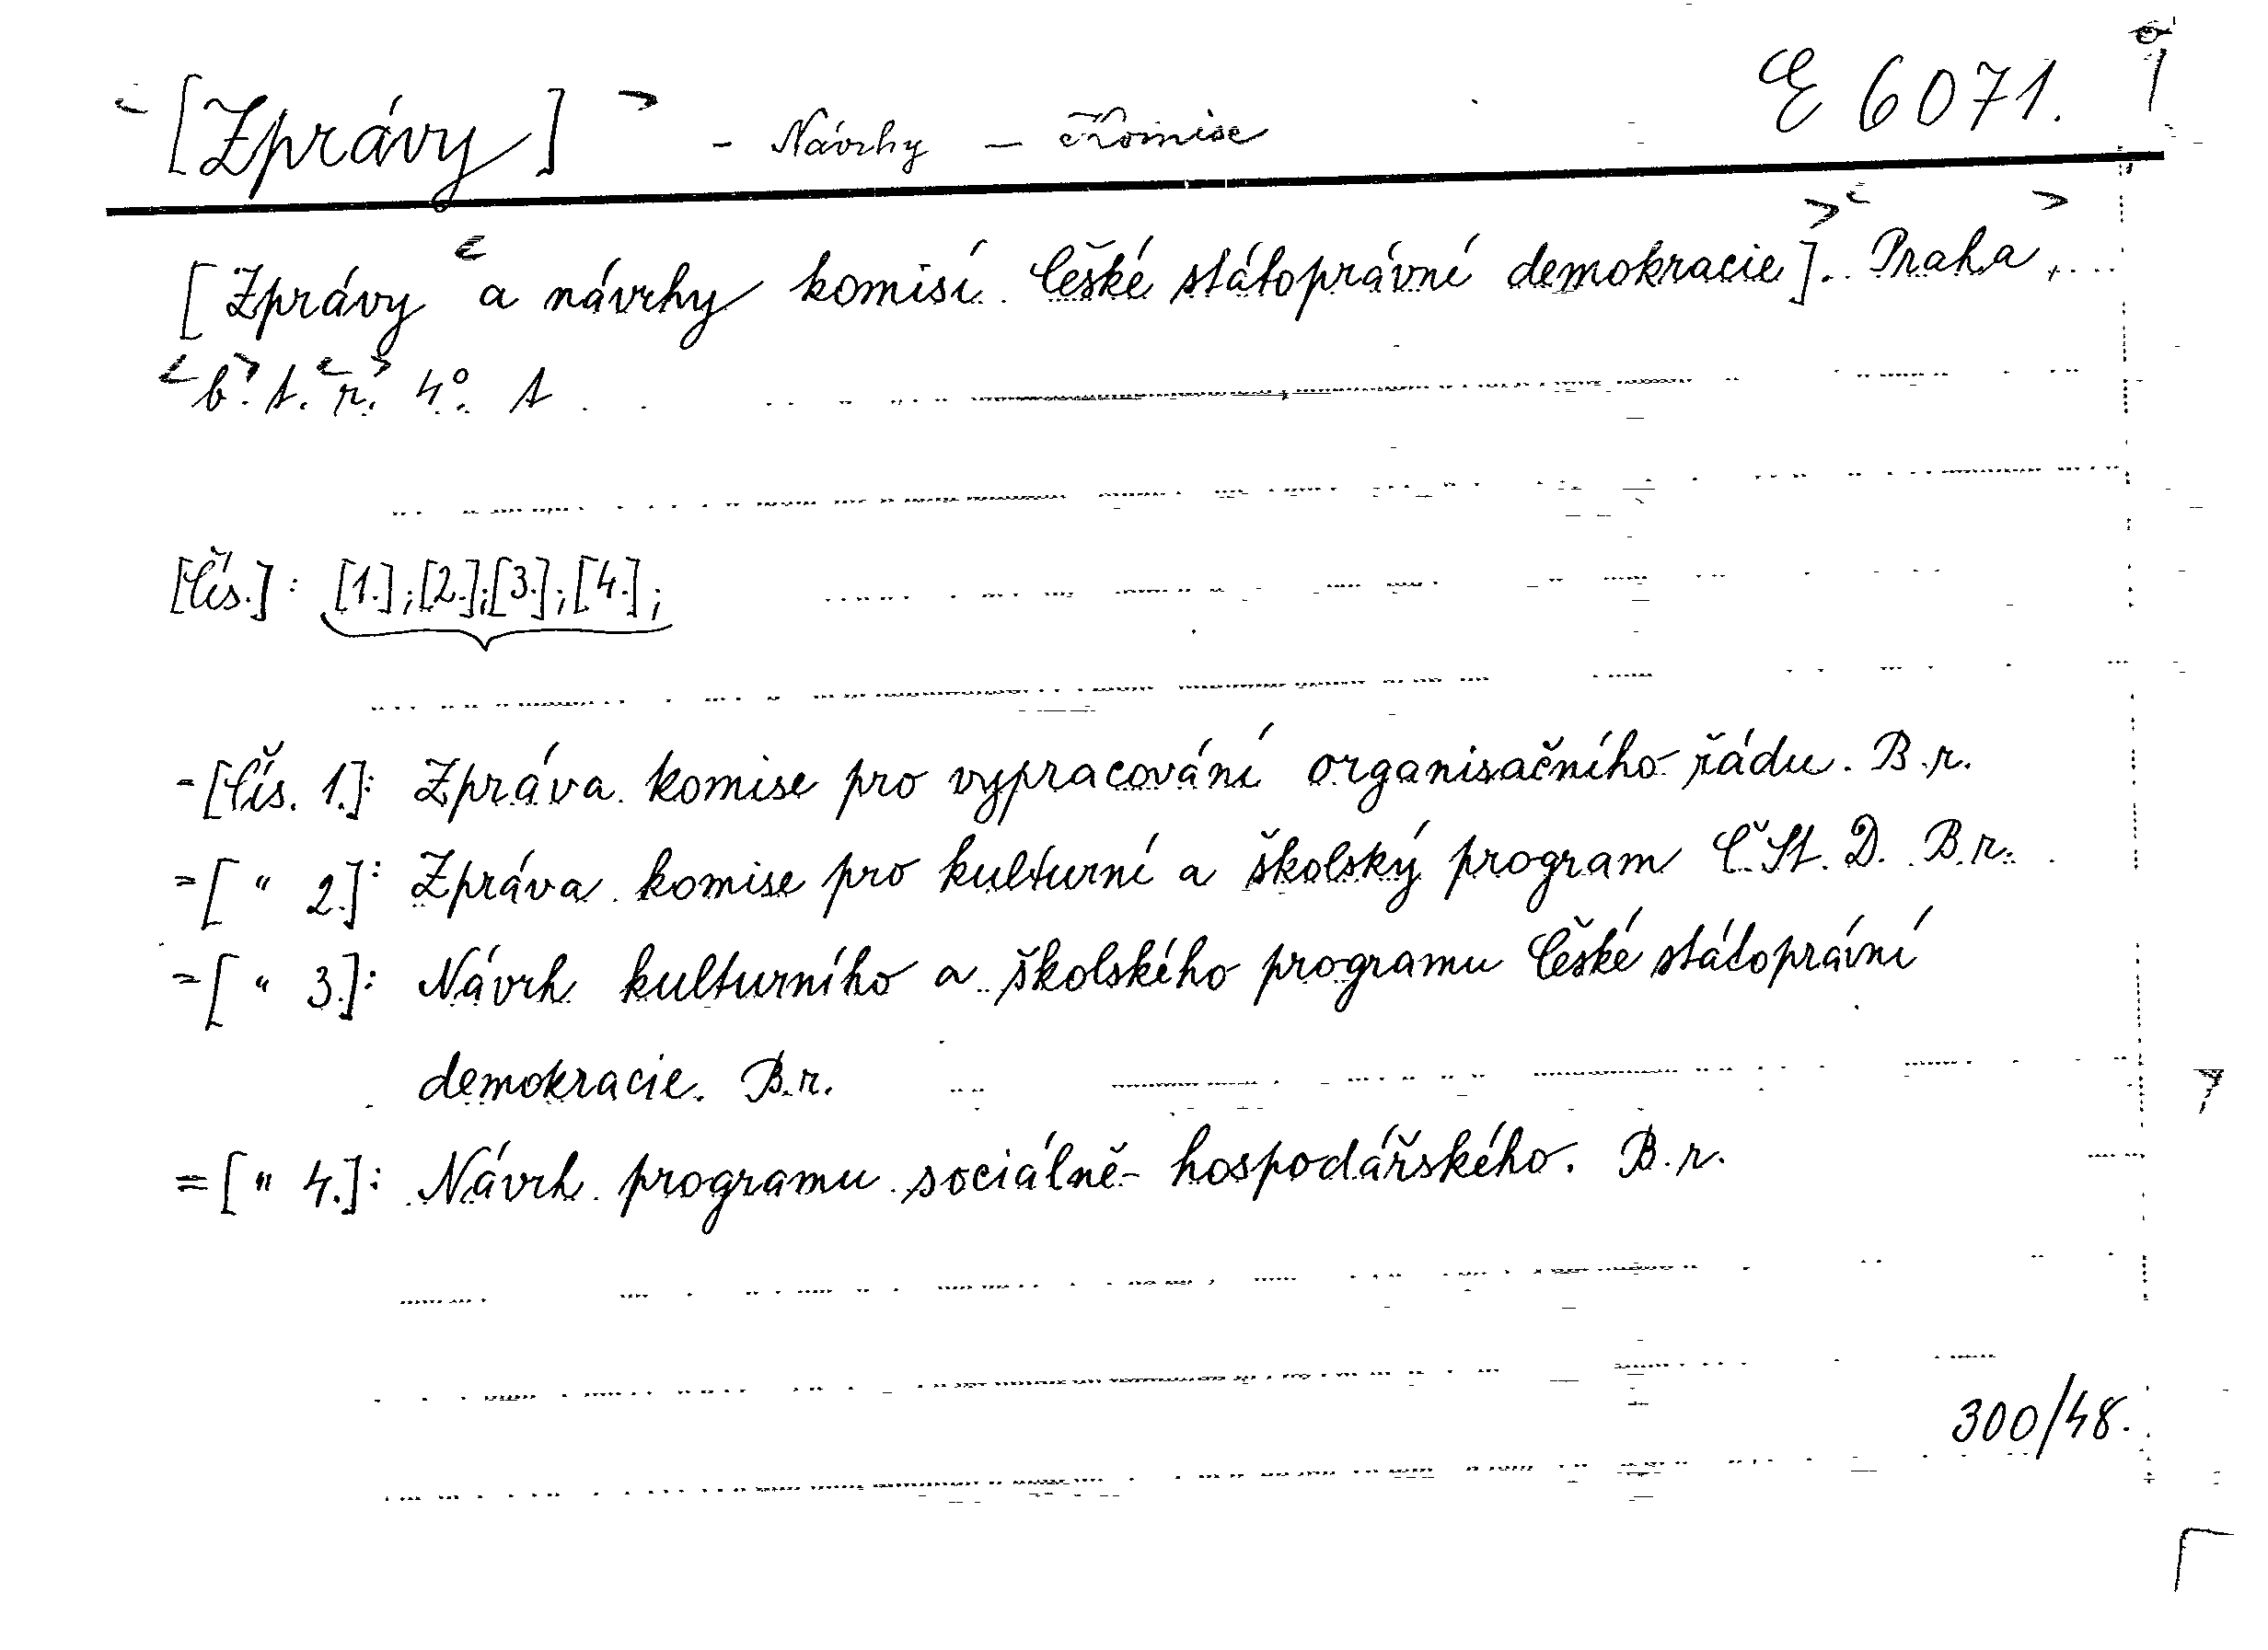 <[Zprávy]> - Návrhy - Komise E 6071.
[Zprávy < a návrhy komisí České státoprávní demokracie].> <Praha>,
<b>. t. <r.> 4°. A
[Čís.]: [1.]; [2.]; [3.]; [4.];
- [Čís. 1.]: Zpráva komise pro vypracování organisačního řádu. B.r.
= [" 2.]: Zpráva komise pro kulturní a školský program Č. St. D. B.r.
= [" 3.]: Návrh kulturního a školského programu České státoprávní
demokracie. B.r.
= [" 4.]: Návrh programu sociálně-hospodářského. B.r.
300/48.